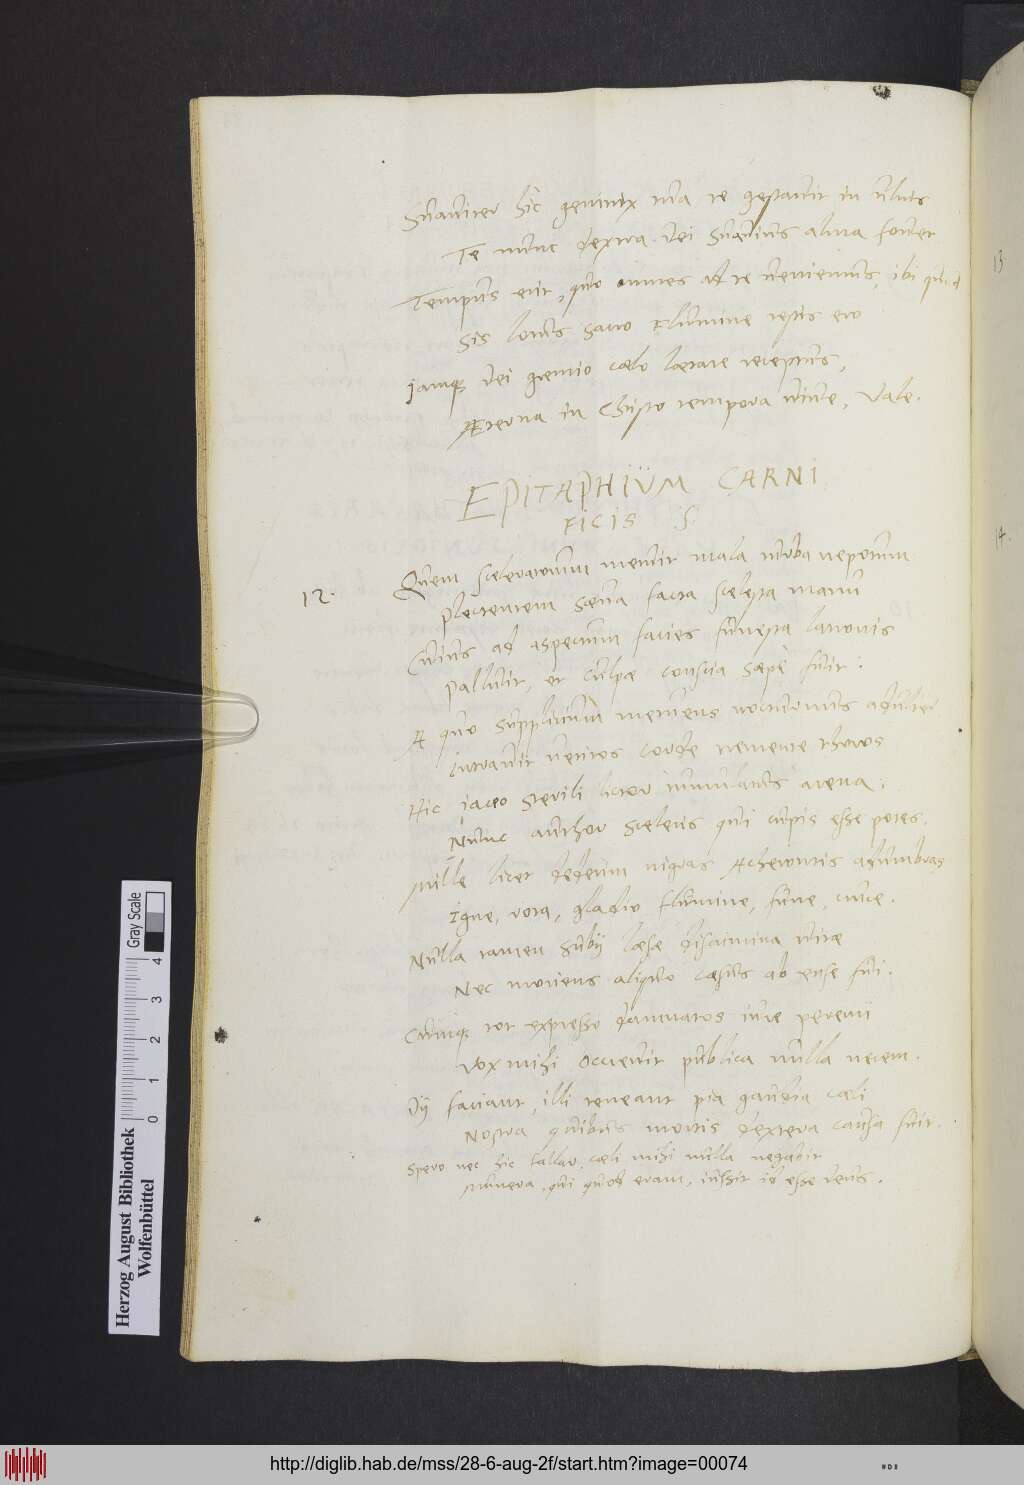 Suaviter hic genitrix tua te gestavit in ulnis
Te nunc dextra dei suavius alma fovet
Tempus erit, quo omnes ad te veniemus, ibi
Sis locus sacro flumine testis ero
jamq dei gremio cælo lætare receptus,
Æterna in Christo tempora vive, Vale.
EPITAPHIUM CARNI
FICIS S.
12.
Quem sceleratorum mentit mala turba nepotum
plectentem sæva facta scelesta manu
Cuius ad aspectum facies funesta latronis
Palluit, et culpæ conscia sæpe fuit:
A quo supplicium metuens nocturnus adulter
intravit vetitos corde tremente thoros
Hic jaceo sterili lictor tumulatus arena:
Nunc author sceleris qui cupis esse potes.
Mille licet dederim nigras Acherontis ad umbras
Igne, rota, gladio flumine, fune, cruce.
Nulla tamen subij læsæ discrimina vitæ
Nec moriens aliquo cæsus ab ense fui.
Cumq tot expresso damnatos iure peremi
Vox mihi occrevit publica nulla necem.
Dij faciant, illi teneant pia gaudia cæli
Nostra quibus mortis dextera causa fuit.
Spero nec hic fallar, cæli mihi nulla negabit
munera, qui quod eram, iussit id esse reus.
13
14.
Herzog August Bibliothek
Wolfenbüttel
Gray Scale
0 1 2 3 4
http://diglib.hab.de/mss/28-6-aug-2f/start.htm?image=00074